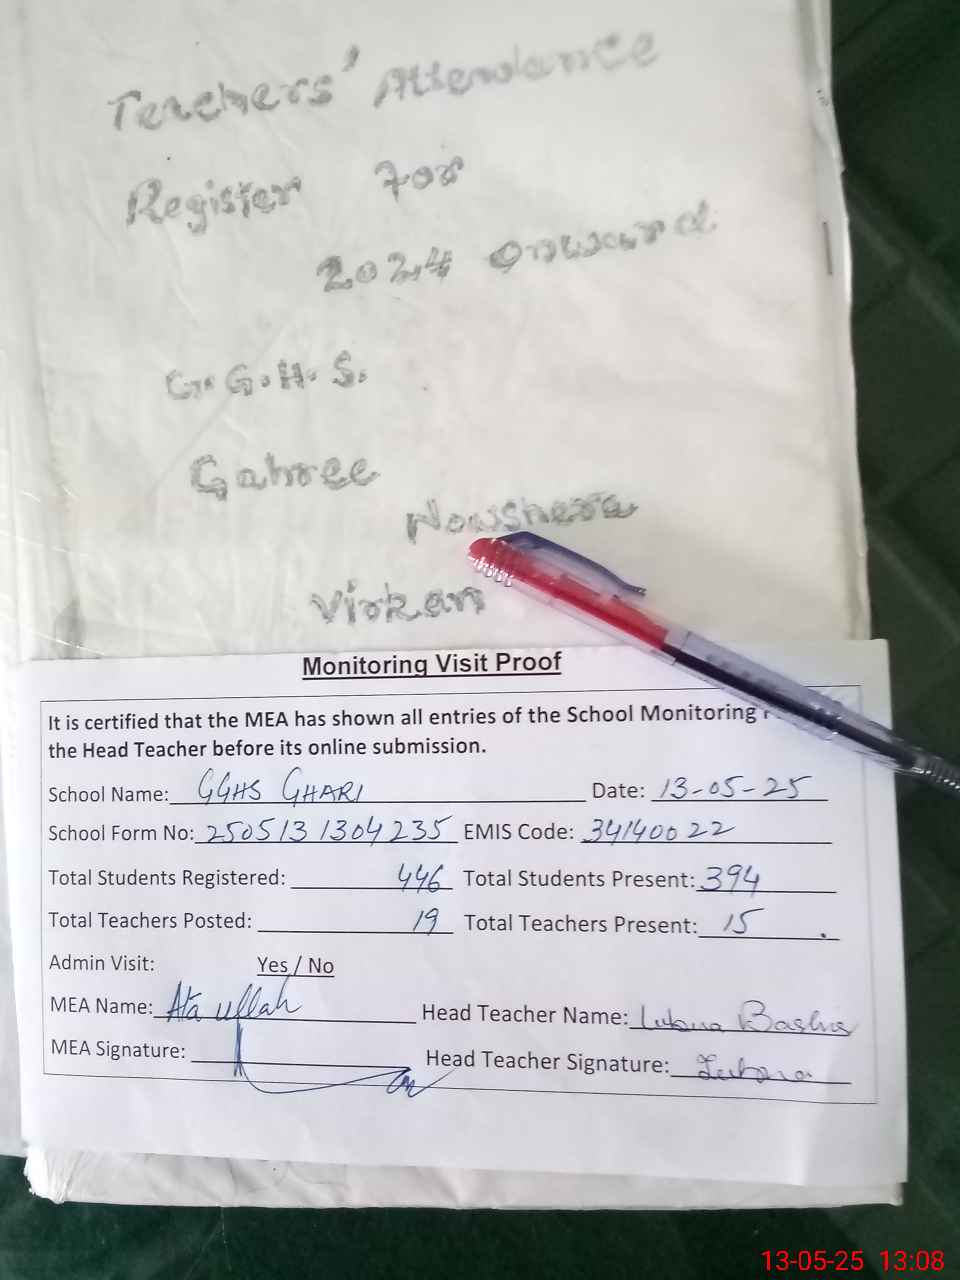 Teachers' Attendance
Register For
2024 onward
G.G.H.S.
Gahree
Nowshera
Virkan
Monitoring Visit Proof
It is certified that the MEA has shown all entries of the School Monitoring
the Head Teacher before its online submission.
School Name: GGHS GHARI Date: 13-05-25
School Form No: 250513 1304235 EMIS Code: 34140022
Total Students Registered: 446 Total Students Present: 394
Total Teachers Posted: 19 Total Teachers Present: 15
Admin Visit: Yes / No
MEA Name: Ata ullah Head Teacher Name: Lubna Bashir
MEA Signature: Head Teacher Signature: Lubna
13-05-25 13:08